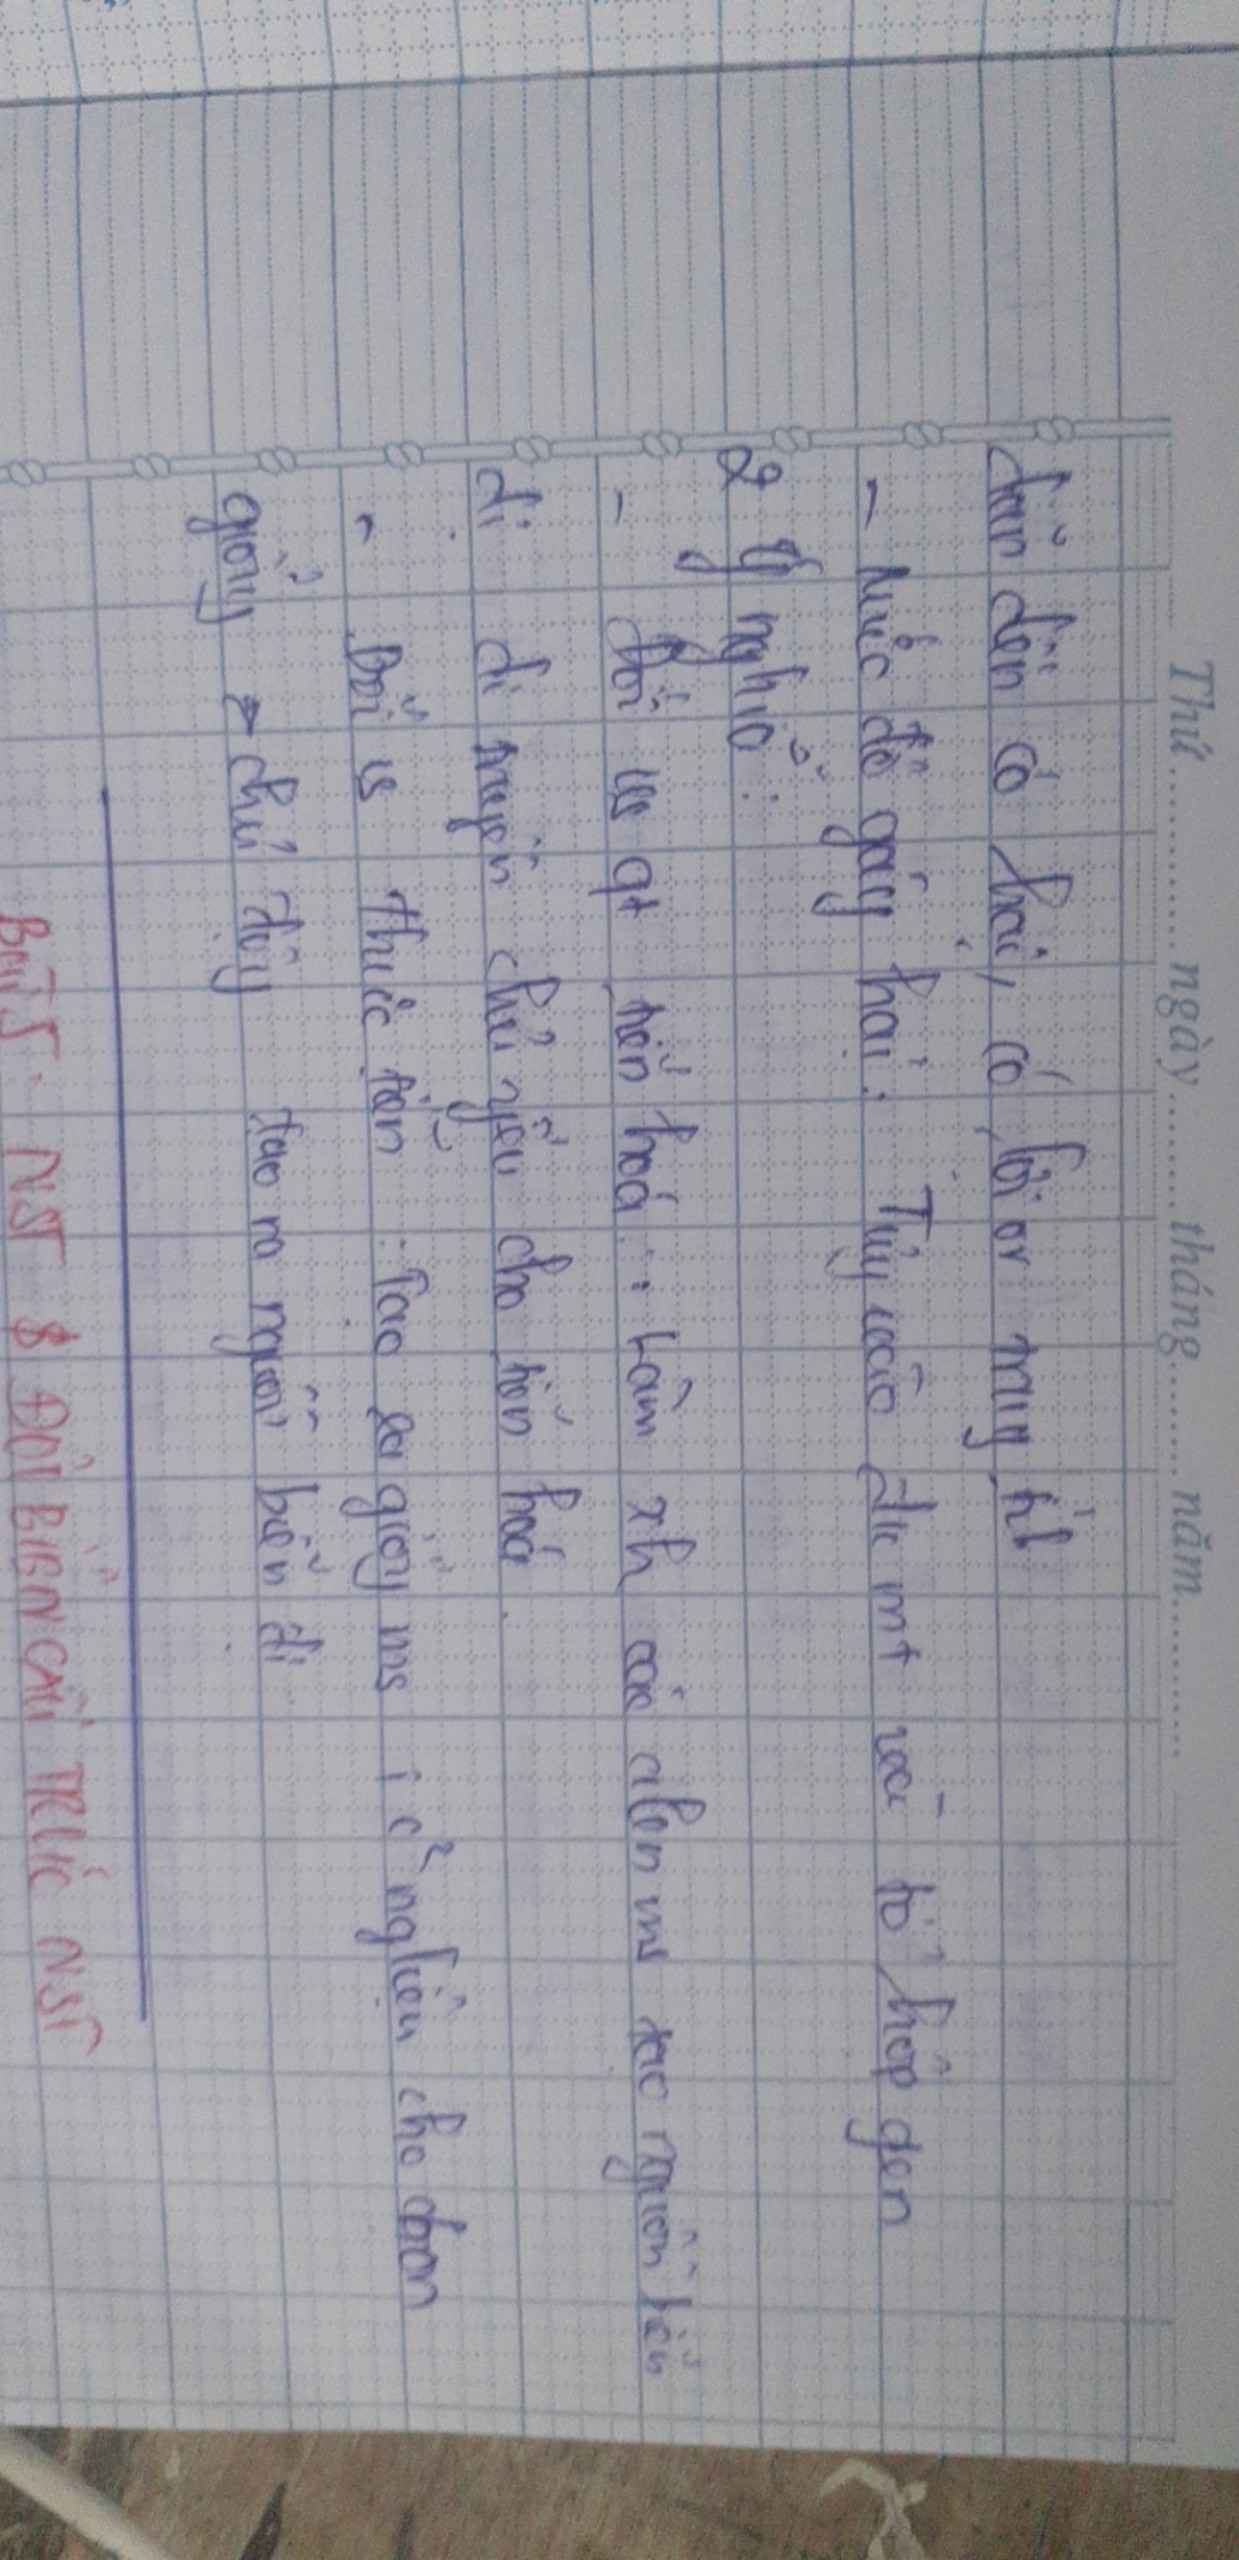 Thứ.......... ngày......... tháng......... năm...............
dẫn đến có hại, có lợi or trung tính
- Mức độ gây hại: Tùy vào đk mt và tổ hợp gen
2 Ý nghĩa:
- Đối vs qt tiến hoá: Làm xh các alen ms tạo nguồn biến
dị di truyền chủ yếu cho tiến hoá.
- Đối vs thực tiễn: Tạo ra giống ms nghiệm cho chọn
giống → chủ động tạo ra nguồn biến dị
Bài 5: NST & ĐỘT BIẾN CẤU TRÚC NST